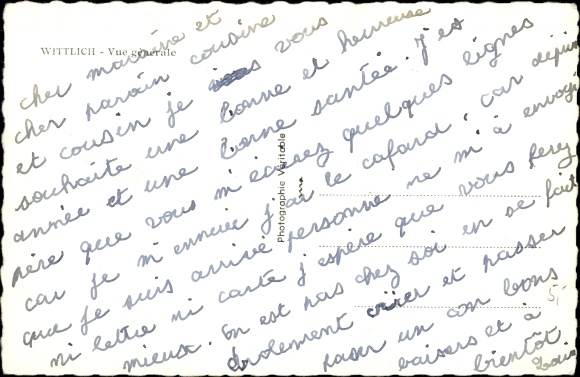 WITTLICH - Vue générale
Photographie Véritable
cher marraine et
cher parain cousine
et cousin je vous
souhaite une bonne et heureuse
année et une bonne santée. J'es
père que vous m'écrirez quelques lignes
car je m'ennuie j'ai le cafard. car depuis
que je suis arrivé personne ne m'a envoyé
ni lettre ni carte j'espère que vous ferez
mieux. On est pas chez soi on se fait
drolement crier et passer
un con bons
baisers et à
bientôt
5,-